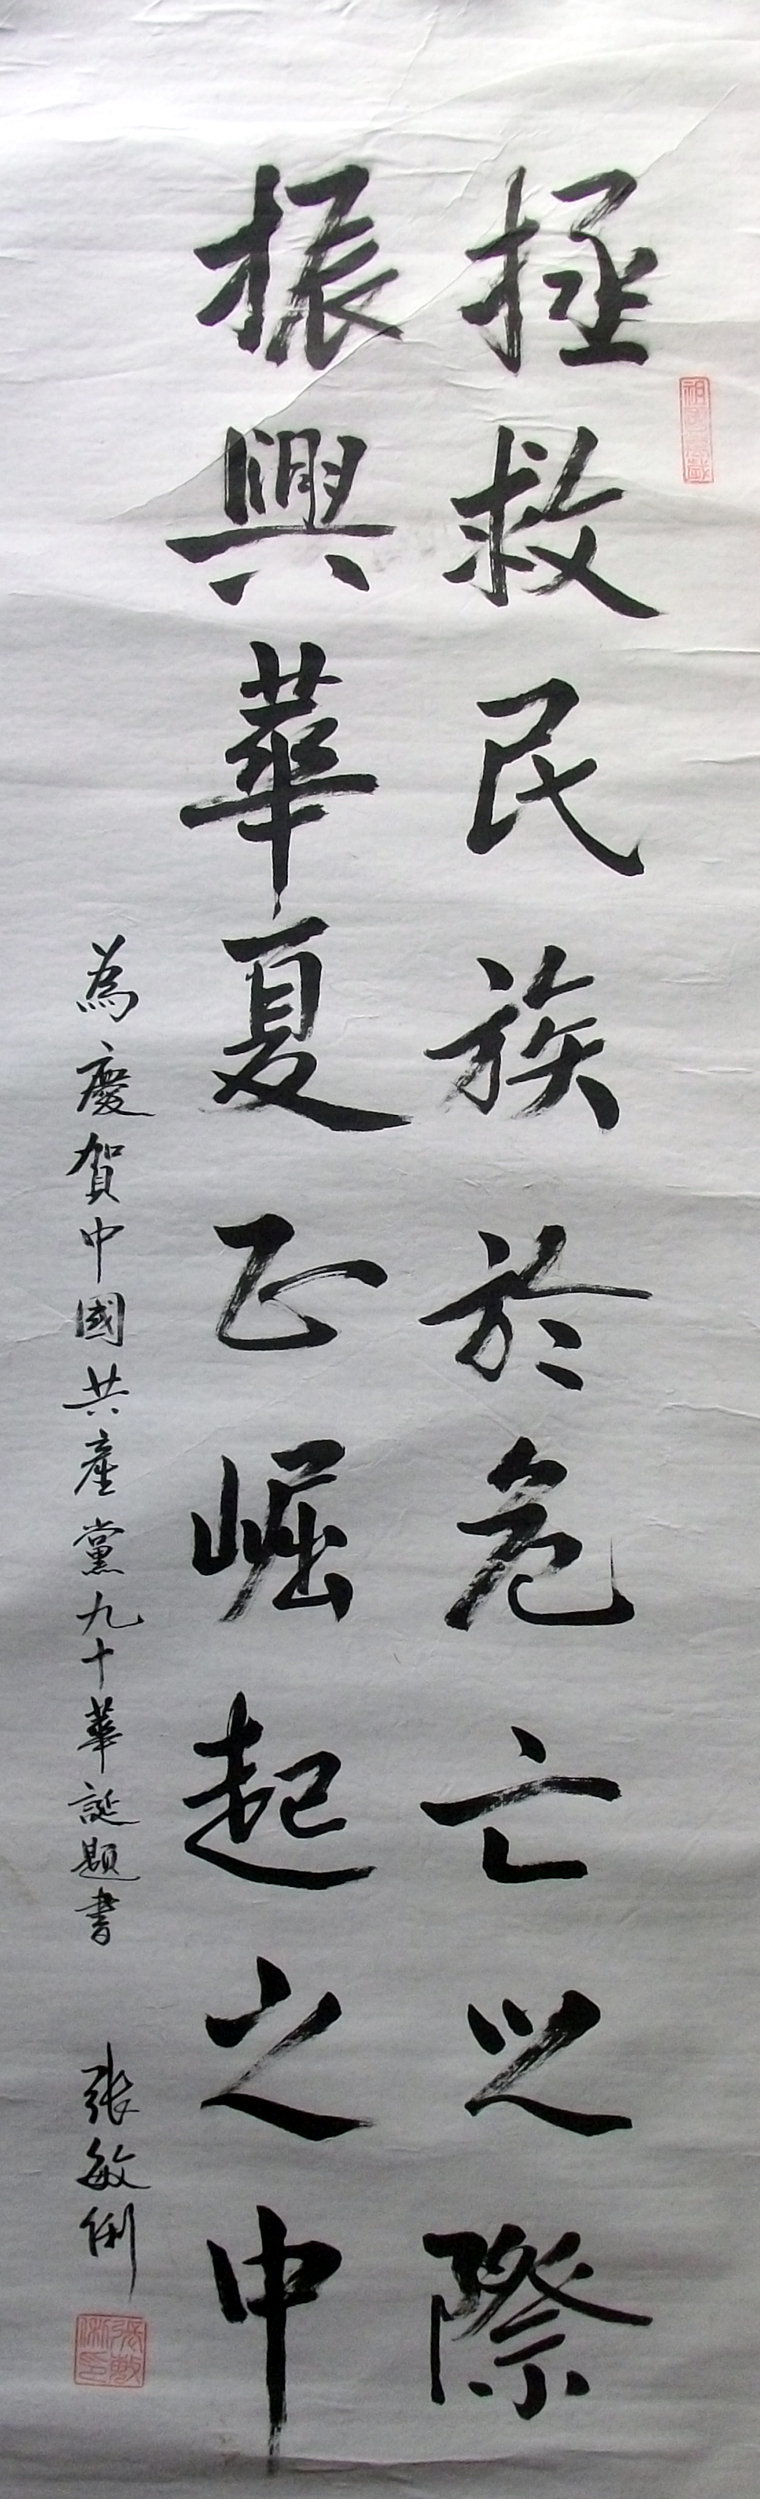 拯救民族於危亡之際
振興華夏正崛起之中
為慶賀中國共產黨九十華誕題書
張敏俐
祖國萬歲